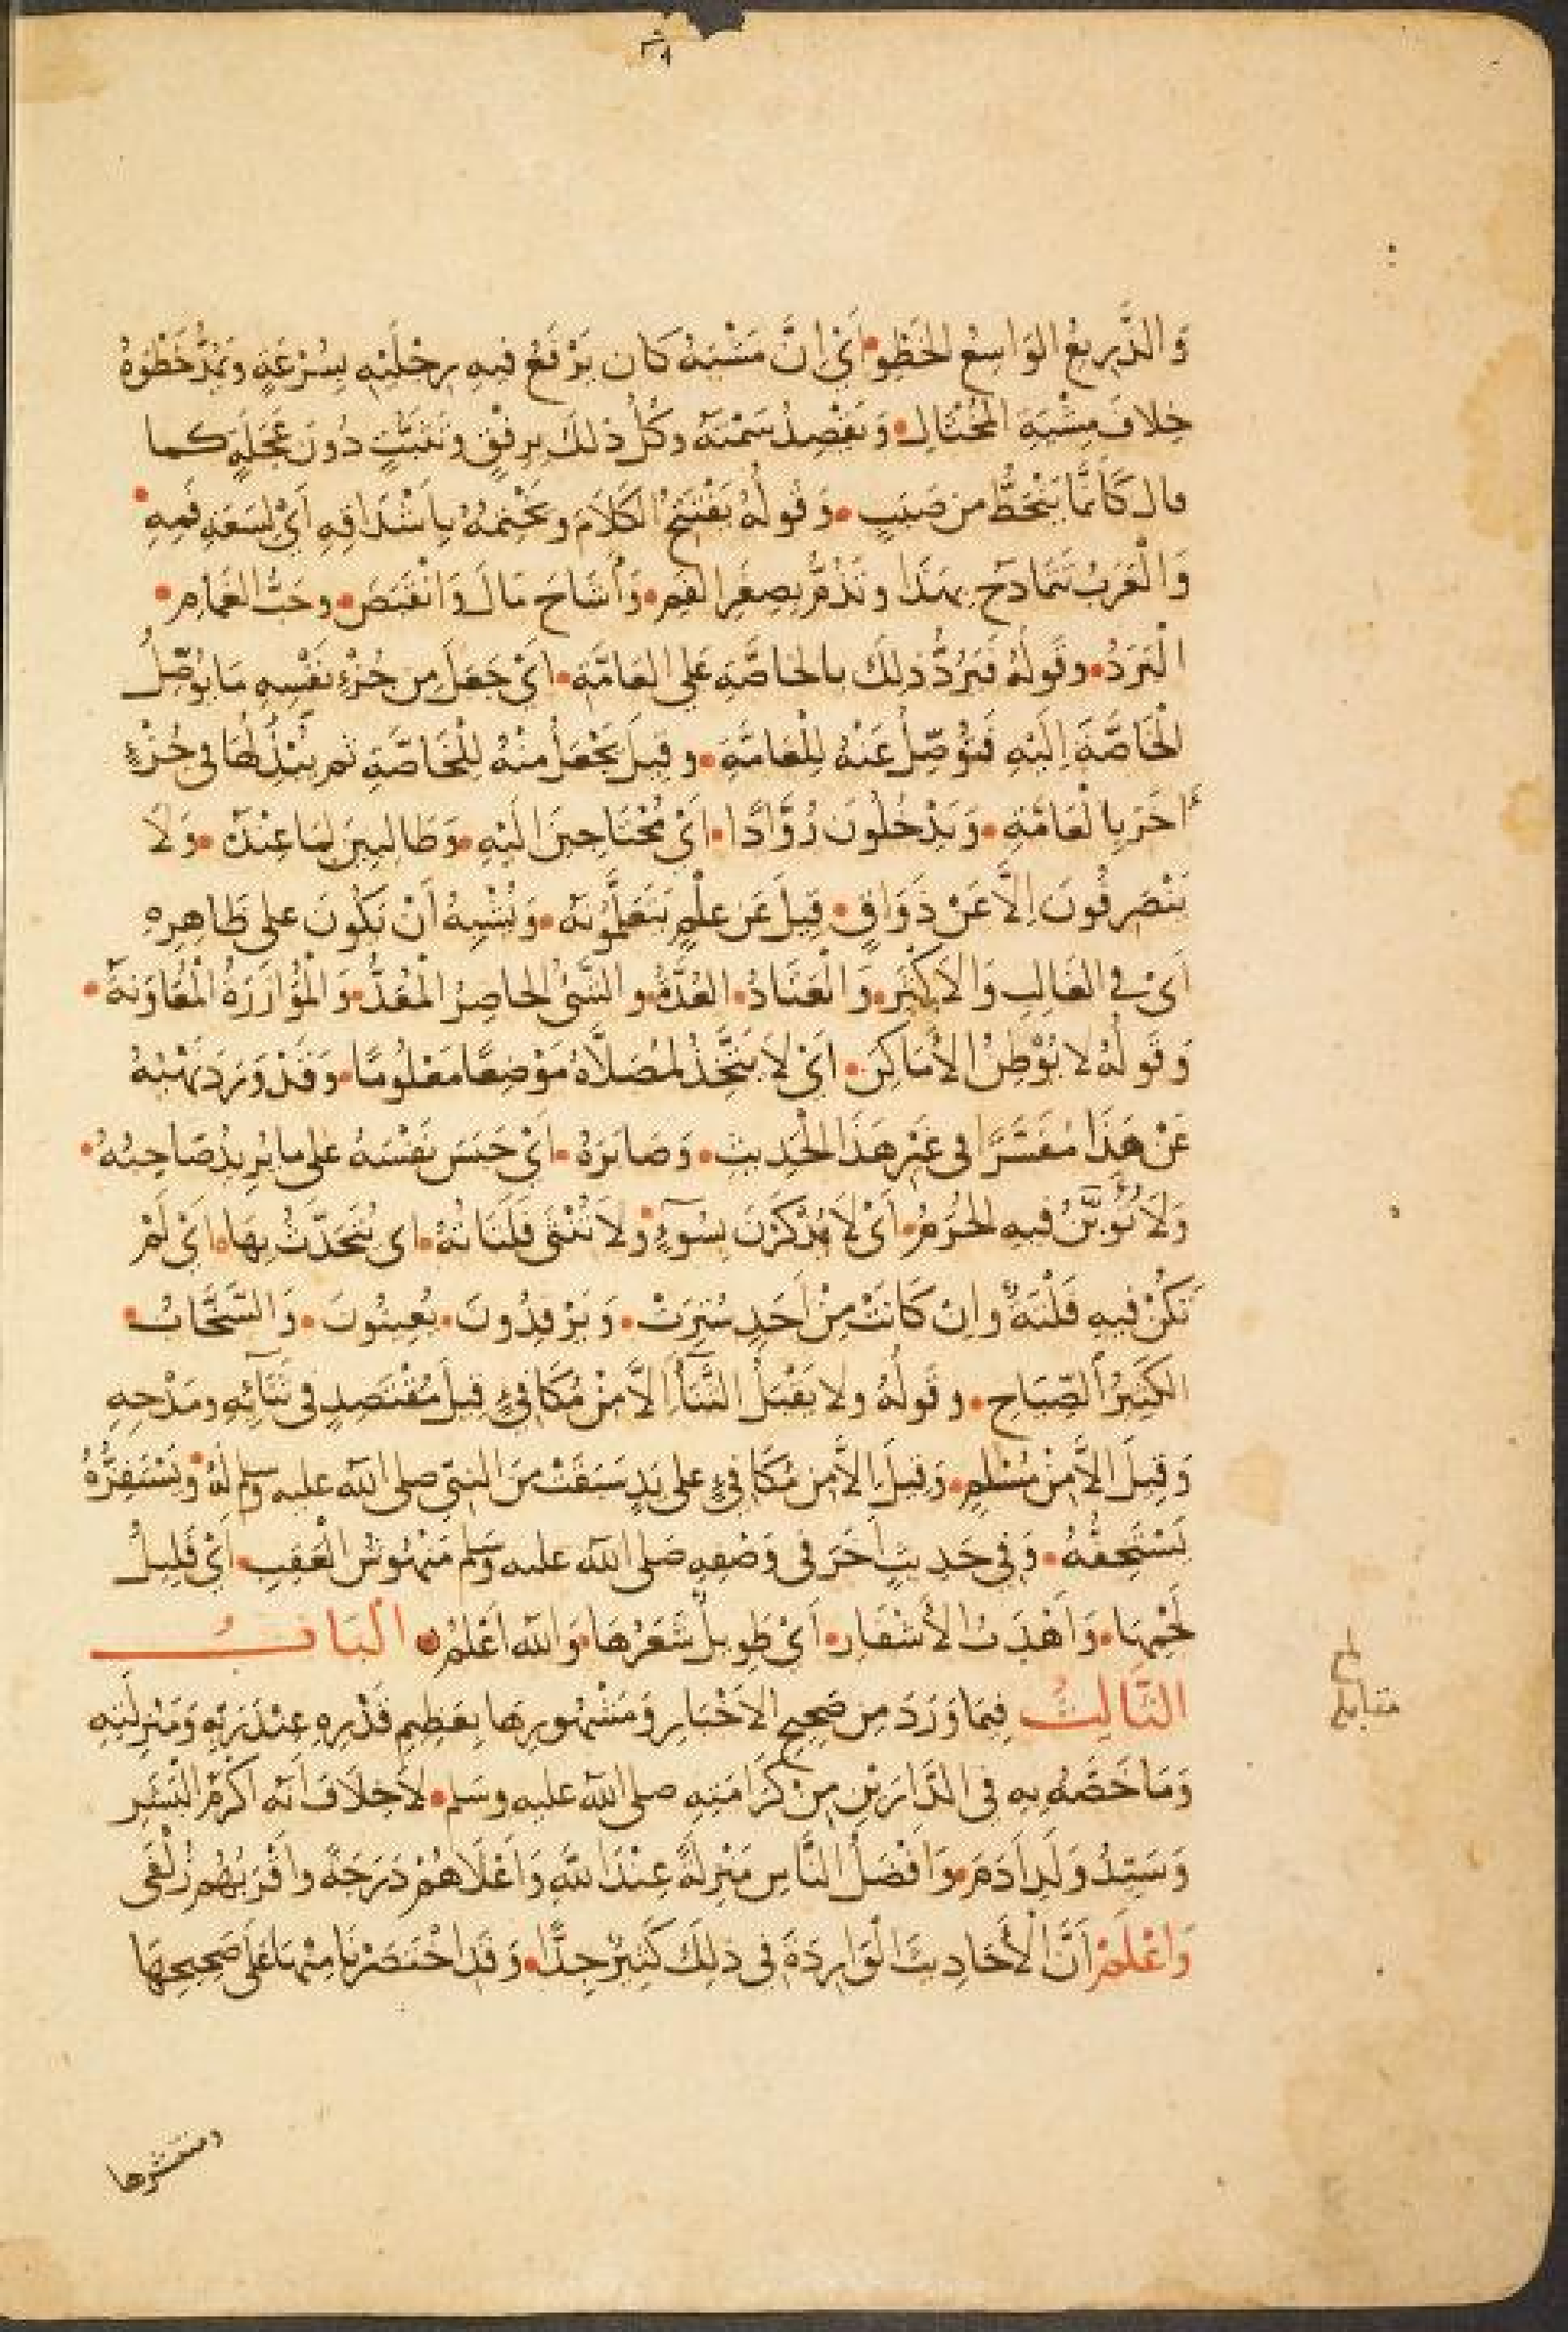 وَالذَّرِيعُ الوَاسِعُ الخَطْوِ أَيْ اِنَّ مَشْيَهُ كَان يَرْفَعُ فيهِ رِجْلَيْهِ بِسُرْعَةٍ وَيَمُدُّ خَطْوَهُ
خِلافَ مِشْيَةِ المُخْتَالِ وَيَقْصِدُ سَمْتَهُ وكُلُّ ذلكَ بِرِفْقٍ وتَثَبُّتٍ دُونَ عَجَلَةٍ كما
قال كَأَنَّمَا يَنْحَطُّ من صَبَبٍ وَقولُهُ يَفْتَتِحُ الكَلَامَ ويَخْتِمُهُ بِأَشْدَاقِهِ اَيْ لِسَعَةِ فَمِهِ
وَالْعَرَبُ تَتَمَادَحُ بِهَذَا وتَذُمُّ بِصِغَرِ الفَمِ وَأَشَاحَ مَالَ وَانْقَبَضَ وحَبُّ الغَمَامِ
الْبَرَدُ وقَولُهُ فَيَرُدُّ ذلِكَ بالخاصَّةِ عَلى العَامَّةِ اَيْ جَعَلَ مِن جُزْءِ نَفْسِهِ مَا يُوَصِّلُ
الْخَاصَّةَ اِلَيْهِ فَتُوَصِّلُ عَنْهُ لِلْعَامَّةِ وقِيلَ يَجْعَلُ مِنْهُ لِلْخَاصَّةِ ثم يُبْدِلُهَا في جُزْءٍ
اٰخَرَ بِالْعَامَّةِ وَيَدْخُلُونَ رُوَّادًا اَيْ مُحْتَاجِينَ اليْهِ وَطَالِبِينَ لِمَا عِنْدَهُ وَلَا
يَنْصَرِفُونَ اِلَّا عَنْ ذَوَاقٍ قِيلَ عَن عِلْمٍ يَتَعَلَّمُونَهُ وَيُشْبِهُ اَنْ يَكُونَ على ظَاهِرِهِ
اَيْ في الغَالِبِ وَالْاَكْثَرِ وَالْعَتَادُ العُدَّةُ والشَّيْءُ الحاضِرُ الْمُعَدُّ وَالْمُؤَازَرَةُ الْمُعَاوَنَةُ
وَقَولُهُ لا يُوْطِنُ الأَمَاكِنَ اَيْ لاَ يَتَّخِذُ لمُصَلَّاهُ مَوْضِعًا مَعْلُومًا وَقَدْ وَرَدَ نَهْيُهُ
عَنْ هَذَا مُفَسَّرًا في غَيْرِ هَذَا الحَدِيثِ وَصَابَرَهُ اَيْ حَبَسَ نَفْسَهُ على ما يُرِيدُ صَاحِبُهُ
وَلَا تُؤبَّنُ فيهِ الحُرَمُ اَيْ لاَ يُذْكَرْنَ بِسُوٓءٍ وَلَا تُنْثَى فَلَتَاتُهُ اي يُتَحَدَّثُ بِهَا اَيْ لَمْ
تَكُنْ فيهِ فَلْتَةٌ وَاِنْ كَانَتْ مِنْ اَحَدٍ سُتِرَتْ وَيَرْفِدُونَ يُعِينُونَ وَالسَّخَّابُ
الكَثِيرُ الصِّيَاحِ وقَولُهُ ولا يَقْبَلُ الثَّنَآءَ اِلَّا مِنْ مُكَافِئٍ قِيلَ مُقْتَصِدٍ في ثَنَآئِهِ ومَدْحِهِ
وَقِيلَ اِلَّا مِنْ مُسْلِمٍ وَقِيلَ اِلَّا مِن مُكَافِئٍ على يَدٍ سَبَقَتْ مِنَ النبيّ صلى الله عليه وسلم لَهُ وَيَسْتَفِزُّهُ
يَسْتَخِفُّهُ وَفِي حَدِيثٍ اٰخَرَ فى وَصْفِهِ صَلى الله عليه وسلم مَنْهُوسُ الْعَقِبِ اَيْ قَلِيلُ
لَحْمِهَا وَاَهْدَبُ الأَشْفَارِ اَيْ طَوِيلُ شَعْرِهَا وَالله اَعْلَمُ الْبَابُ
الثَّالِثُ فِيمَا وَرَدَ مِن صَحِيحِ الاَخْبَارِ وَمَشْهُورِهَا بِعَظِيمِ قَدْرِهِ عِنْدَ رَبِّهِ وَمَنْزِلَتِهِ
وَمَا خَصَّهُ بِهِ فى الدَّارَيْنِ مِنْ كَرَامَتِهِ صلى الله عليه وسلم لَاخِلَافَ اَنَّهُ اَكْرَمُ الْبَشَرِ
وَسَيِّدُ وَلَدِ اٰدَمَ وَاَفْضَلُ النَّاسِ مَنْزِلَةً عِنْدَ اللهِ وَاَعْلَاهُمْ دَرَجَةً وَاَقْرَبُهُمْ زُلْفَى
وَاعْلَمْ اَنَّ الْأَحَادِيثَ الْوَارِدَةَ فِي ذلِكَ كَثِيرٌ جِدًّا وَقَدِ اخْتَصَرْنَا مِنْهَا عَلَى صَحِيحِهَا
مقابلة
ومنتشرها